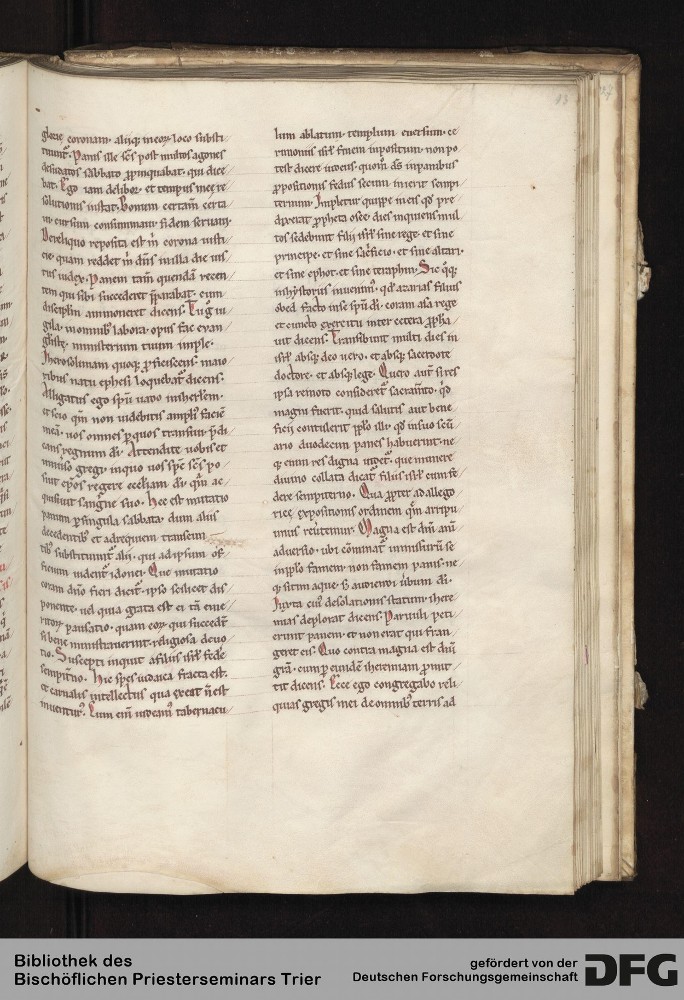 13
glorię coronam. aliiq; in eoꝝ loco substi/
tuunt᷑. Panis ille sc̄s post multos agones
desudatos sabbato ꝓpinquabat. qui dice/
bat. Ego iam delibor. et tempus meę re/
solutionis instat. Bonum certam̄ certa/
ui. cursum consummaui. fidem seruaui.
De reliquo reposita est m̄ corona iusti/
cię. quam reddet m̄ dn̄s in illa die ius/
tus iudex. Panem tam̄ quendā recen/
tem qui sibi succederet p̄parabat. cum
disciplm̄ ammoneret dicens. Tu g̊ ui/
gila. in omnib; labora. opus fac euan/
gl̄istę. ministerium tuum imple.
Iherosolimam quoq; ꝓficiscens. maio/
ribus natu ephesi loquebat᷑ dicens.
Alligatus ego spū uado in ihrl̄em.
et scio qm̄ non uidebitis ampli᷒ faciē
meā. uos omnes ꝑ quos transiui. p̄di/
cans regnum dī. Attendite uobis et
uniu̇so gregi. in quo uos sp̄c sc̄s po/
suit ep̄os regere ecclīam dī. qm̄ ac/
quisiuit sang̊ne suo. Hęc est mutatio
panum ꝑ singula sabbata. dum aliis
decedentib; et ad requiem transeun/
tib; substituunt᷑ alii. qui ad ipsum of/
ficium uident᷑ idonei. Quę mutatio
coram dn̄o fieri dicit᷑. ipso scilicet dis/
ponente. uel quia grata est ei tā eme/
ritoꝝ pausatio. quam eoꝝ qui succedt᷑
si bene ministrauerint. religiosa deuo/
tio. Suscepti inquit a filiis isrl̄ fędē
sempitn̄o. Hic spes iudaica fracta est.
et carnalis intellectus qua exeat n̄ est
inuentur᷒. Cum eni᷑ uideam᷒ tabernacu/
lum ablatum. templum euersum. ce/
rimoniis isrl̄ finem inpositum. non po/
test dicere iudeus. quom̊ ds̄ in panibus
ꝓpositionis fędus secum inierit sempi/
ternum. Impletur quippe in eis qd̄ pre/
dixerat ꝓpheta osee. dies inquiens mul/
tos sedebunt filii isrl̄ sine rege. et sine
principe. et sine sac̊ficio. et sine altari.
et sine ephot. et sine teraphin. Sic q̊q;
in hystoriis inuenim᷒. qd̄ azarias filius
obed. facto in se spū dī. coram asa rege
et cuncto exercitu inter cetera ꝓpha/
uit dicens. Transibunt multi dies in
isrl̄ absq; deo uero. et absq; sacerdote
doctore. et absq; lege. Quero aut̄ si res
ipsa remoto consideret᷑ sacram̄to. qd̄
magni fuerit. quid salutis aut bene/
ficii contulerit pp̄lo illi. qd̄ in suo scū/
ario duodecim panes habuerint. ne/
q; enim res digna uidet᷑. quę munere
diuino collata dicat᷑ filiis isrl̄ cum fę/
dere sempiterno. Qua ꝓpter ad allego/
ricę expositionis ordinem qm̄ arripu/
imus reu̇temur. Magna est dn̄i ani/
aduersio. ubi cōminat᷑ inmissurū se
in pp̄lo famem. non famem panis. ne/
q; sitim aquę. sꝫ audiendi u̇bum dī.
Iuxta cui᷒ desolationis statum. ihere/
mias deplorat dicens. Paruuli peti/
erunt panem. et non erat qui fran/
geret eis. Quo contra magna est dn̄i
grā. cum ꝑ eundē iheremiam ꝓmit/
tit dicens. Ecce ego congregabo reli/
quias gregis mei de omnib; terris ad
Bibliothek des
Bischöflichen Priesterseminars Trier
gefördert von der
Deutschen Forschungsgemeinschaft
DFG